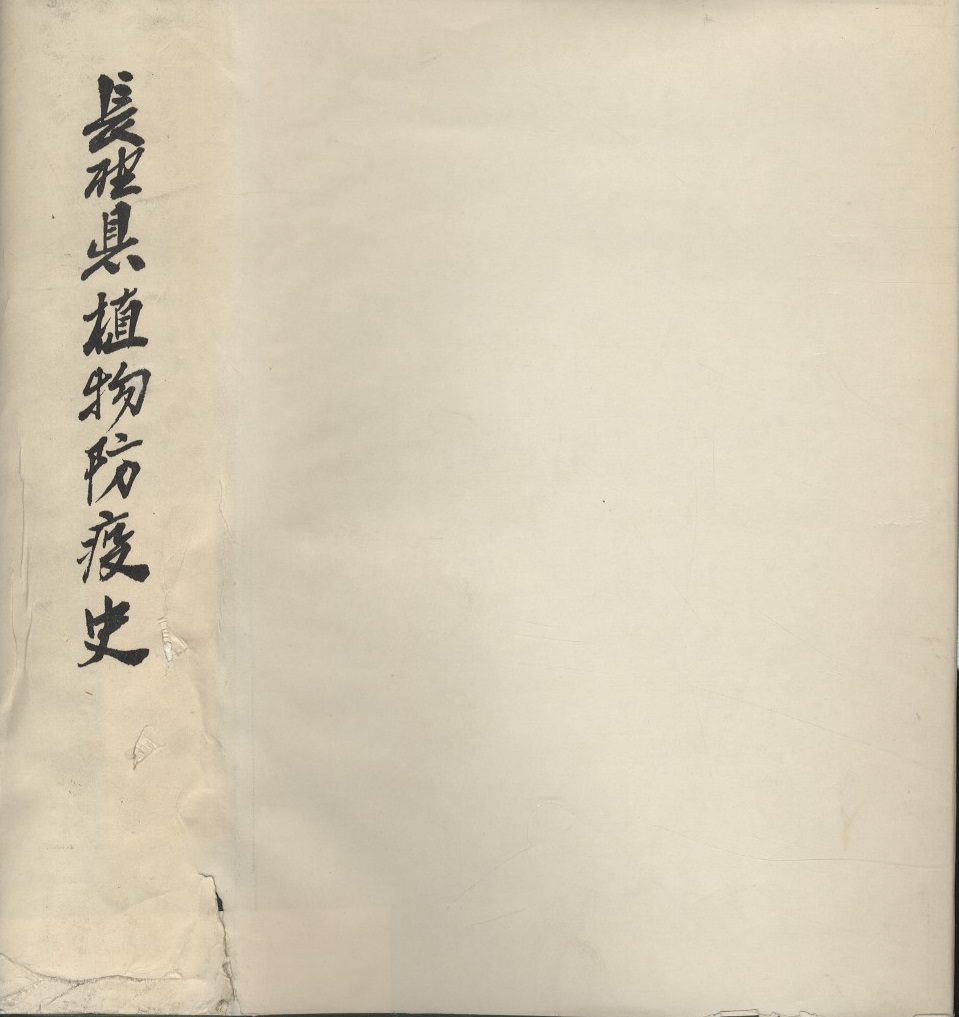 長野県植物防疫史